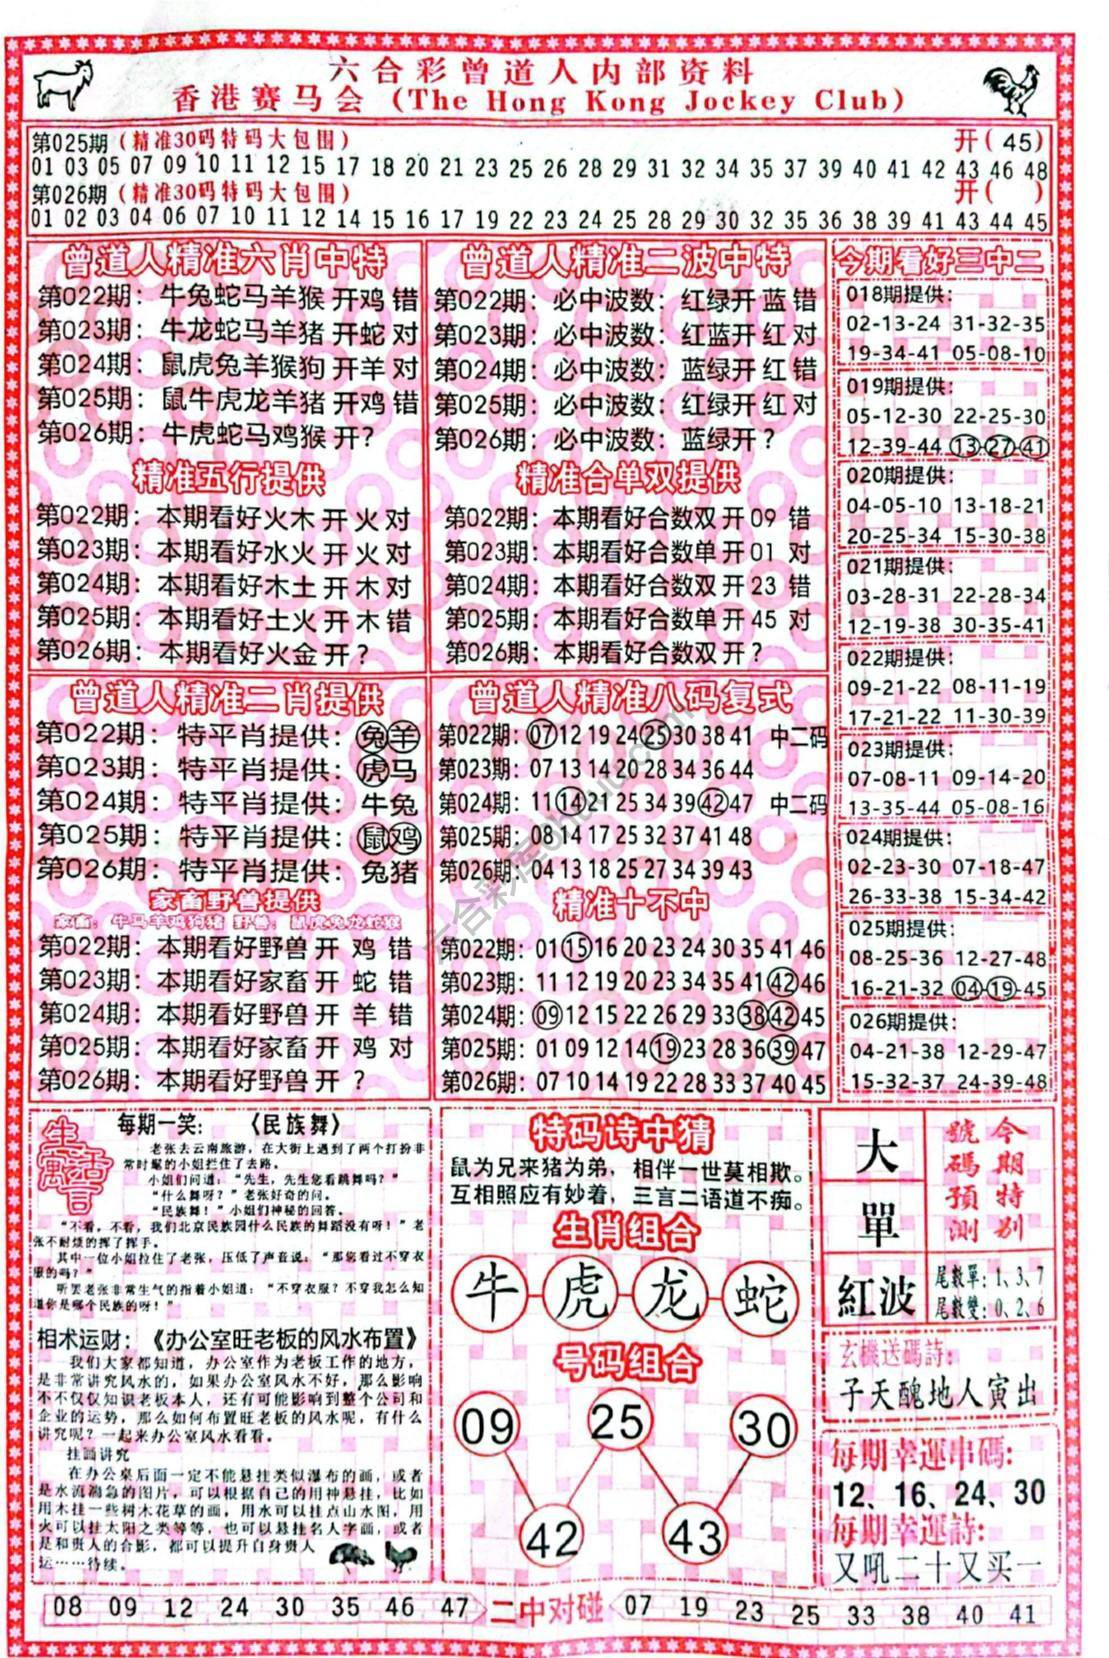 六合彩曾道人内部资料
香港赛马会 (The Hong Kong Jockey Club)
第025期(精准30码特码大包围) 开( 45)
01 03 05 07 09 10 11 12 15 17 18 20 21 23 25 26 28 29 31 32 34 35 37 39 40 41 42 43 46 48
第026期(精准30码特码大包围) 开( )
01 02 03 04 06 07 10 11 12 14 15 16 17 19 22 23 24 25 28 29 30 32 35 36 38 39 41 43 44 45
曾道人精准六肖中特
第022期：牛兔蛇马羊猴 开鸡 错
第023期：牛龙蛇马羊猪 开蛇 对
第024期：鼠虎兔羊猴狗 开羊 对
第025期：鼠牛虎龙羊猪 开鸡 错
第026期：牛虎蛇马鸡猴 开?
精准五行提供
第022期：本期看好火木 开 火 对
第023期：本期看好水火 开 火 对
第024期：本期看好木土 开 木 对
第025期：本期看好土火 开 木 错
第026期：本期看好火金 开？
曾道人精准二波中特
第022期：必中波数：红绿开 蓝 错
第023期：必中波数：红蓝开 红 对
第024期：必中波数：蓝绿开 红 错
第025期：必中波数：红绿开 红 对
第026期：必中波数：蓝绿开？
精准合单双提供
第022期：本期看好合数双 开 09 错
第023期：本期看好合数单 开 01 对
第024期：本期看好合数双 开 23 错
第025期：本期看好合数单 开 45 对
第026期：本期看好合数双 开？
今期看好三中二
018期提供：
02-13-24 31-32-35
19-34-41 05-08-10
019期提供：
05-12-30 22-25-30
12-39-44 13-27-41
020期提供：
04-05-10 13-18-21
20-25-34 15-30-38
021期提供：
03-28-31 22-28-34
12-19-38 30-35-41
022期提供：
09-21-22 08-11-19
17-21-22 11-30-39
023期提供：
07-08-11 09-14-20
13-35-44 05-08-16
024期提供：
02-23-30 07-18-47
26-33-38 15-34-42
025期提供：
08-25-36 12-27-48
16-21-32 04-19-45
026期提供：
04-21-38 12-29-47
15-32-37 24-39-48
曾道人精准二肖提供
第022期：特平肖提供：兔羊
第023期：特平肖提供：虎马
第024期：特平肖提供：牛兔
第025期：特平肖提供：鼠鸡
第026期：特平肖提供：兔猪
家畜野兽提供
家畜：牛马羊鸡狗猪 野兽：鼠虎兔龙蛇猴
第022期：本期看好野兽 开 鸡 错
第023期：本期看好家畜 开 蛇 错
第024期：本期看好野兽 开 羊 错
第025期：本期看好家畜 开 鸡 对
第026期：本期看好野兽 开 ？
曾道人精准八码复式
第022期：07 12 19 24 25 30 38 41 中二码
第023期：07 13 14 20 28 34 36 44
第024期：11 14 21 25 34 39 42 47 中二码
第025期：08 14 17 25 32 37 41 48
第026期：04 13 18 25 27 34 39 43
精准十不中
第022期：01 15 16 20 23 24 30 35 41 46
第023期：11 12 19 20 23 34 35 41 42 46
第024期：09 12 15 22 26 29 33 38 42 45
第025期：01 09 12 14 19 23 28 36 39 47
第026期：07 10 14 19 22 28 33 37 40 45
生活寓言
每期一笑：《民族舞》
老张去云南旅游，在大街上遇到了两个打扮非
常时髦的小姐拦住了去路。
小姐们问道：“先生，先生您看跳舞吗？”
“什么舞呀？”老张好奇的问。
“民族舞！”小姐们神秘的回答。
“不看，不看，我们北京民族园什么民族的舞蹈没有呀！”老
张不耐烦的挥了挥手。
其中一位小姐拉住了老张，压低了声音说：“那您看过不穿衣
服的吗？”
听罢老张非常生气的指着小姐道：“不穿衣服？不穿我怎么知
道你是哪个民族的呀！”
相术运财：《办公室旺老板的风水布置》
我们大家都知道，办公室作为老板工作的地方，
是非常讲究风水的，如果办公室风水不好，那么影响
不不仅仅知识老板本人，还有可能影响到整个公司和
企业的运势，那么如何布置旺老板的风水呢，有什么
讲究呢？一起来办公室风水看看。
挂画讲究
在办公桌后面一定不能悬挂类似瀑布的画，或者
是水流湍急的图片，可以根据自己的用神悬挂，比如
用木挂一些树木花草的画，用水可以挂点山水图，用
火可以挂太阳之类等等，也可以悬挂名人字画，或者
是和贵人的合影，都可以提升自身贵人
运……待续。
特码诗中猜
鼠为兄来猪为弟，相伴一世莫相欺。
互相照应有妙着，三言二语道不痴。
生肖组合
牛 虎 龙 蛇
号码组合
09 25 30
42 43
大
單
紅波
今期特别
號碼預測
尾數單：1、3、7
尾數雙：0、2、6
玄機送碼詩：
子天醜地人寅出
每期幸運串碼：
12、16、24、30
每期幸運詩：
又吼二十又买一
08 09 12 24 30 35 46 47 二中对碰 07 19 23 25 33 38 40 41